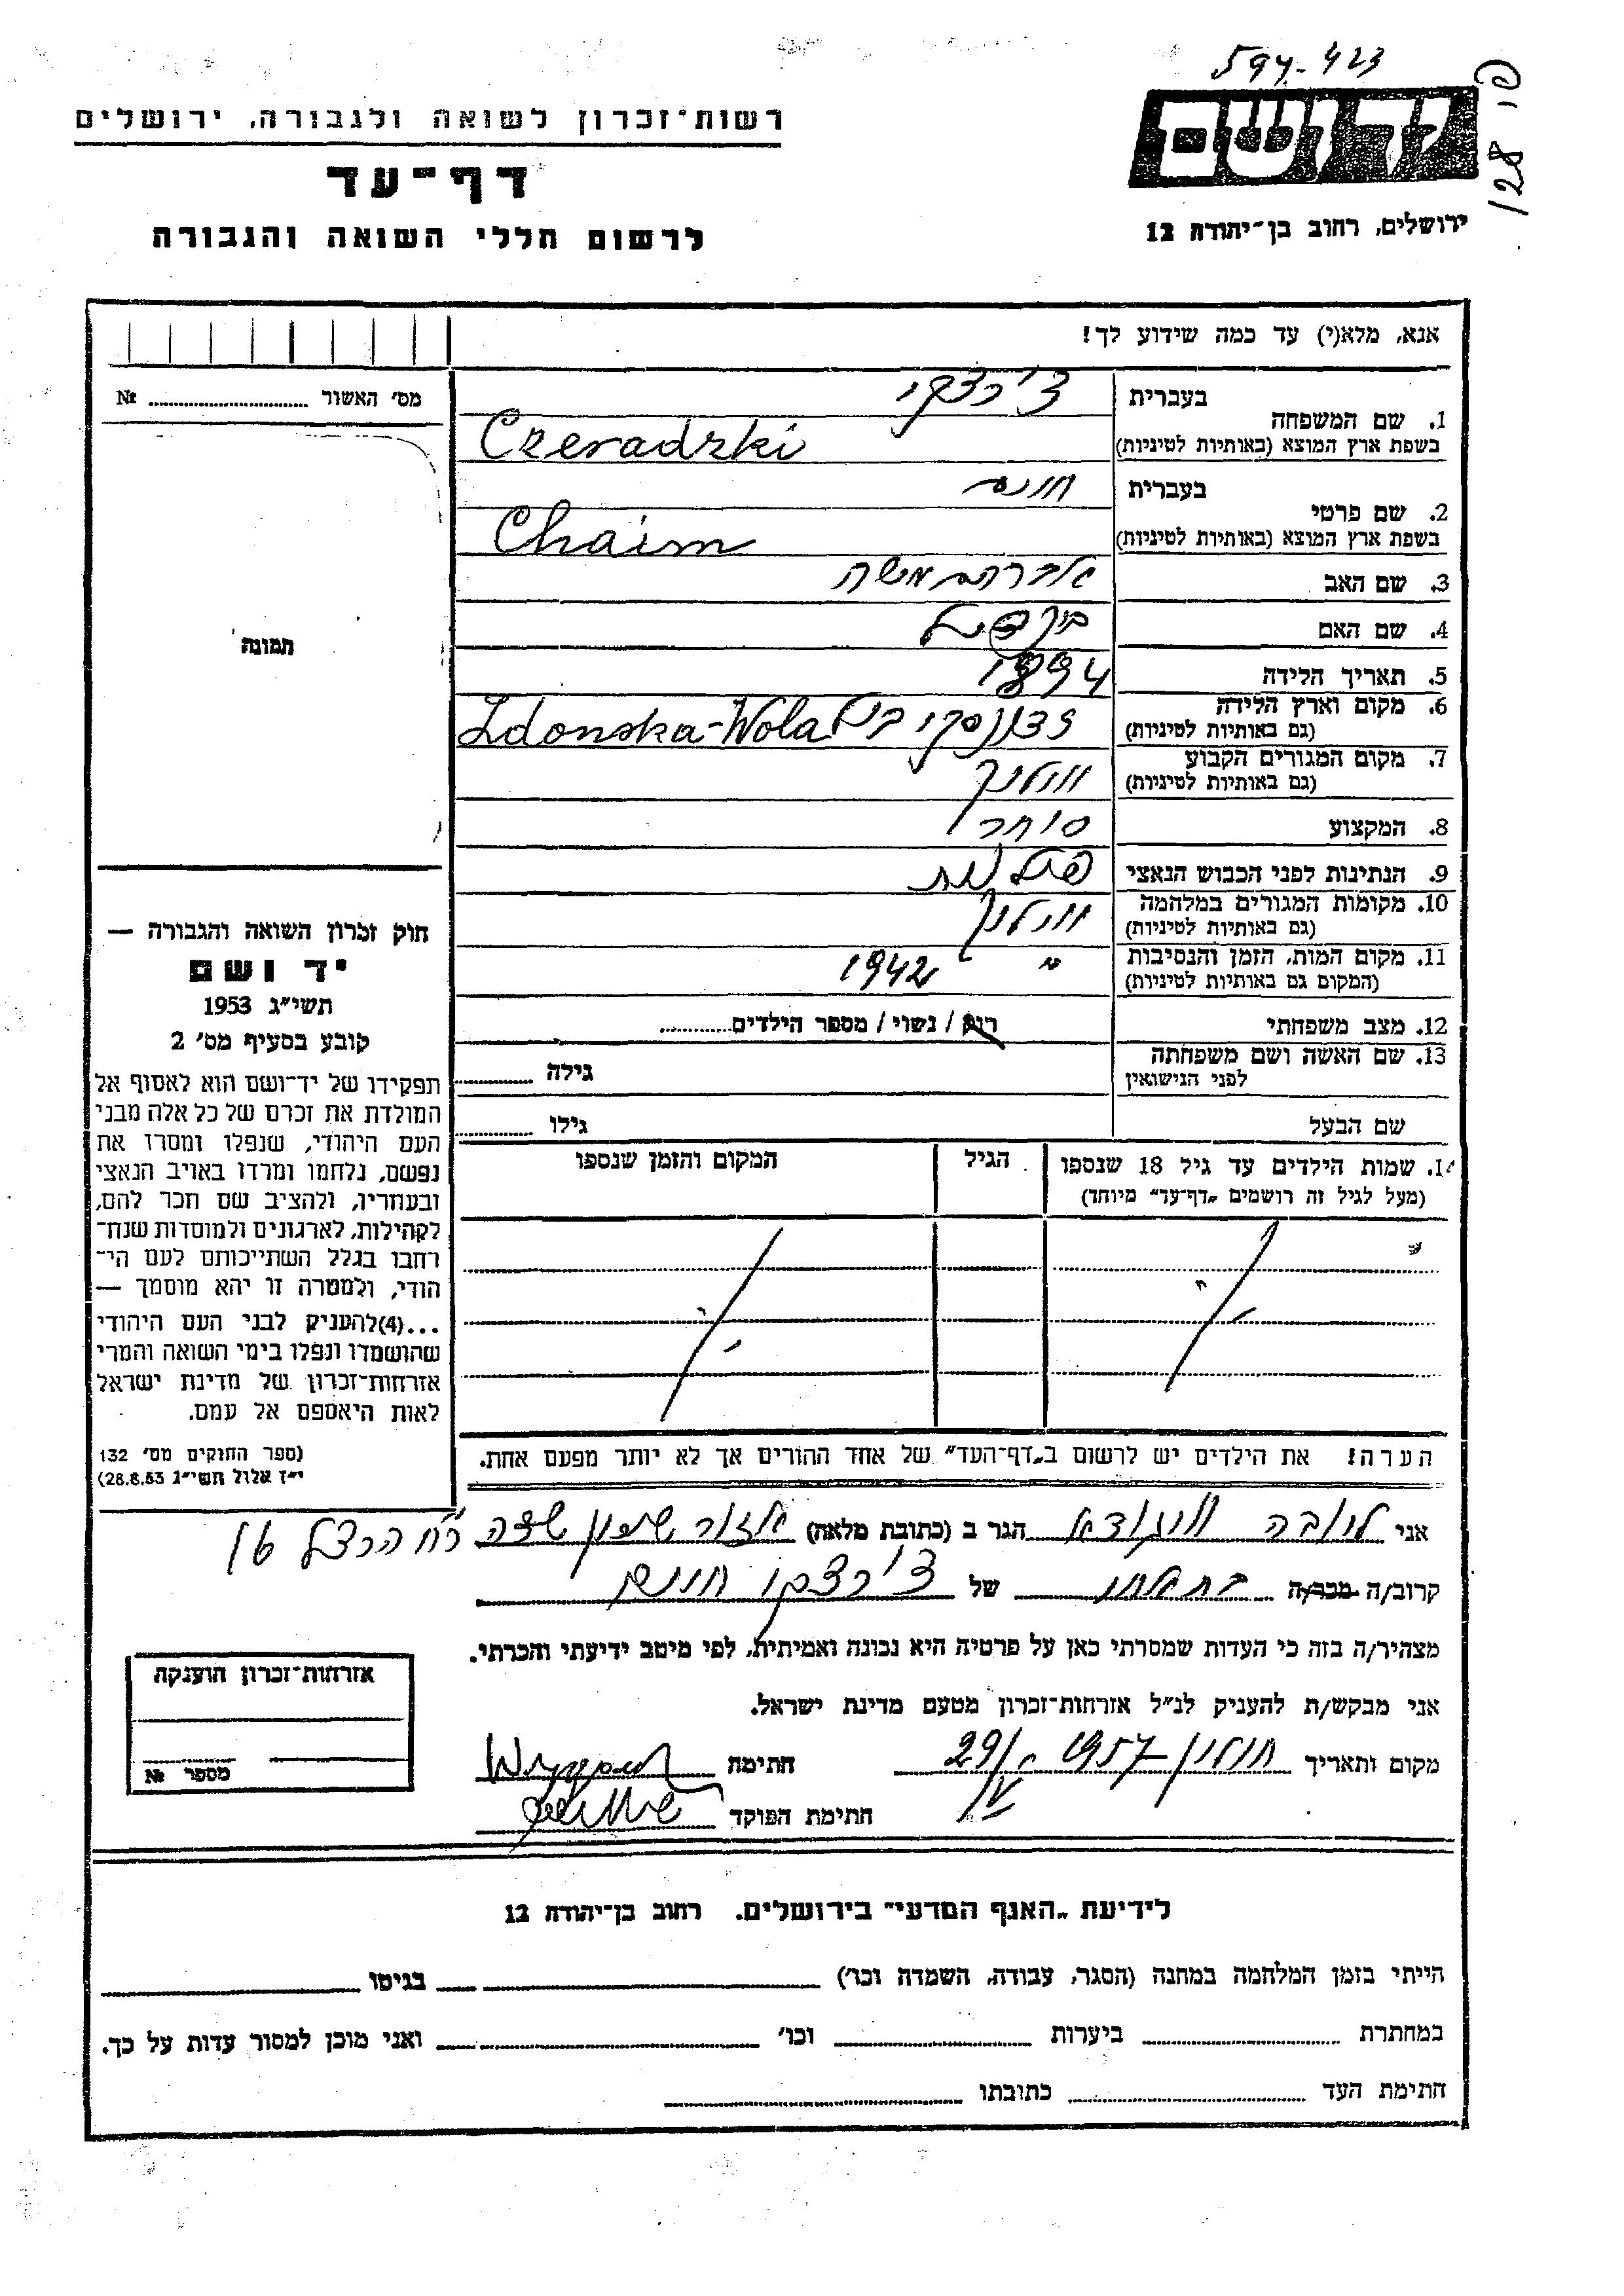 594-423
פו 128
יד ושם
ירושלים, רחוב בן-יהודה 12
רשות-זכרון לשואה ולגבורה, ירושלים
דף-עד
לרשום חללי השואה והגבורה
אנא, מלא(י) עד כמה שידוע לך!
מס' האשור № ........
תמונה
1. שם המשפחה
בעברית צ'רצקי
בשפת ארץ המוצא (באותיות לטיניות) Czeradzki
2. שם פרטי
בעברית חיים
בשפת ארץ המוצא (באותיות לטיניות) Chaim
3. שם האב אברהם משה
4. שם האם
5. תאריך הלידה 1894
6. מקום וארץ הלידה
(גם באותיות לטיניות) Zdonska-Wola
7. מקום המגורים הקבוע
(גם באותיות לטיניות)
8. המקצוע סוחר
9. הנתינות לפני הכבוש הנאצי פולנית
10. מקומות המגורים במלחמה
(גם באותיות לטיניות)
11. מקום המות, הזמן והנסיבות
(המקום גם באותיות לטיניות) " 1942
12. מצב משפחתי רוק / נשוי / מספר הילדים........
13. שם האשה ושם משפחתה
לפני הנישואין
גילה ........
שם הבעל גילו ........
14. שמות הילדים עד גיל 18 שנספו
(מעל לגיל זה רושמים „דף-עד" מיוחד)
הגיל
המקום והזמן שנספו
הערה! את הילדים יש לרשום ב„דף-העד" של אחד ההורים אך לא יותר מפעם אחת.
חוק זכרון השואה והגבורה —
יד ושם
תשי"ג 1953
קובע בסעיף מס' 2
תפקידו של יד-ושם הוא לאסוף אל
המולדת את זכרם של כל אלה מבני
העם היהודי, שנפלו ומסרו את
נפשם, נלחמו ומרדו באויב הנאצי
ובעוזריו, ולהציב שם וזכר להם,
לקהילות, לארגונים ולמוסדות שנח-
רבו בגלל השתייכותם לעם הי-
הודי, ולמטרה זו יהא מוסמך —
...(4) להעניק לבני העם היהודי
שהושמדו ונפלו בימי השואה והמרי
אזרחות-זכרון של מדינת ישראל
לאות היאספם אל עמם.
(ספר החוקים מס' 132
י"ז אלול תשי"ג 28.8.53)
אני ליובה הגר ב (כתובת מלאה) אזור רח הרצל
קרוב/ה מכר/ה בת אחו של צ'רצקי חיים
מצהיר/ה בזה כי העדות שמסרתי כאן על פרטיה היא נכונה ואמיתית, לפי מיטב ידיעתי והכרתי.
אני מבקש/ת להעניק לנ"ל אזרחות-זכרון מטעם מדינת ישראל.
מקום ותאריך חולון 29/IV 1957 חתימה
חתימת הפוקד
אזרחות-זכרון הוענקה
מספר №
לידיעת „האגף המדעי" בירושלים. רחוב בן-יהודה 12
הייתי בזמן המלחמה במחנה (הסגר, עבודה, השמדה וכו') בגיטו
במחתרת ביערות וכו' ואני מוכן למסור עדות על כך.
חתימת העד כתובתו